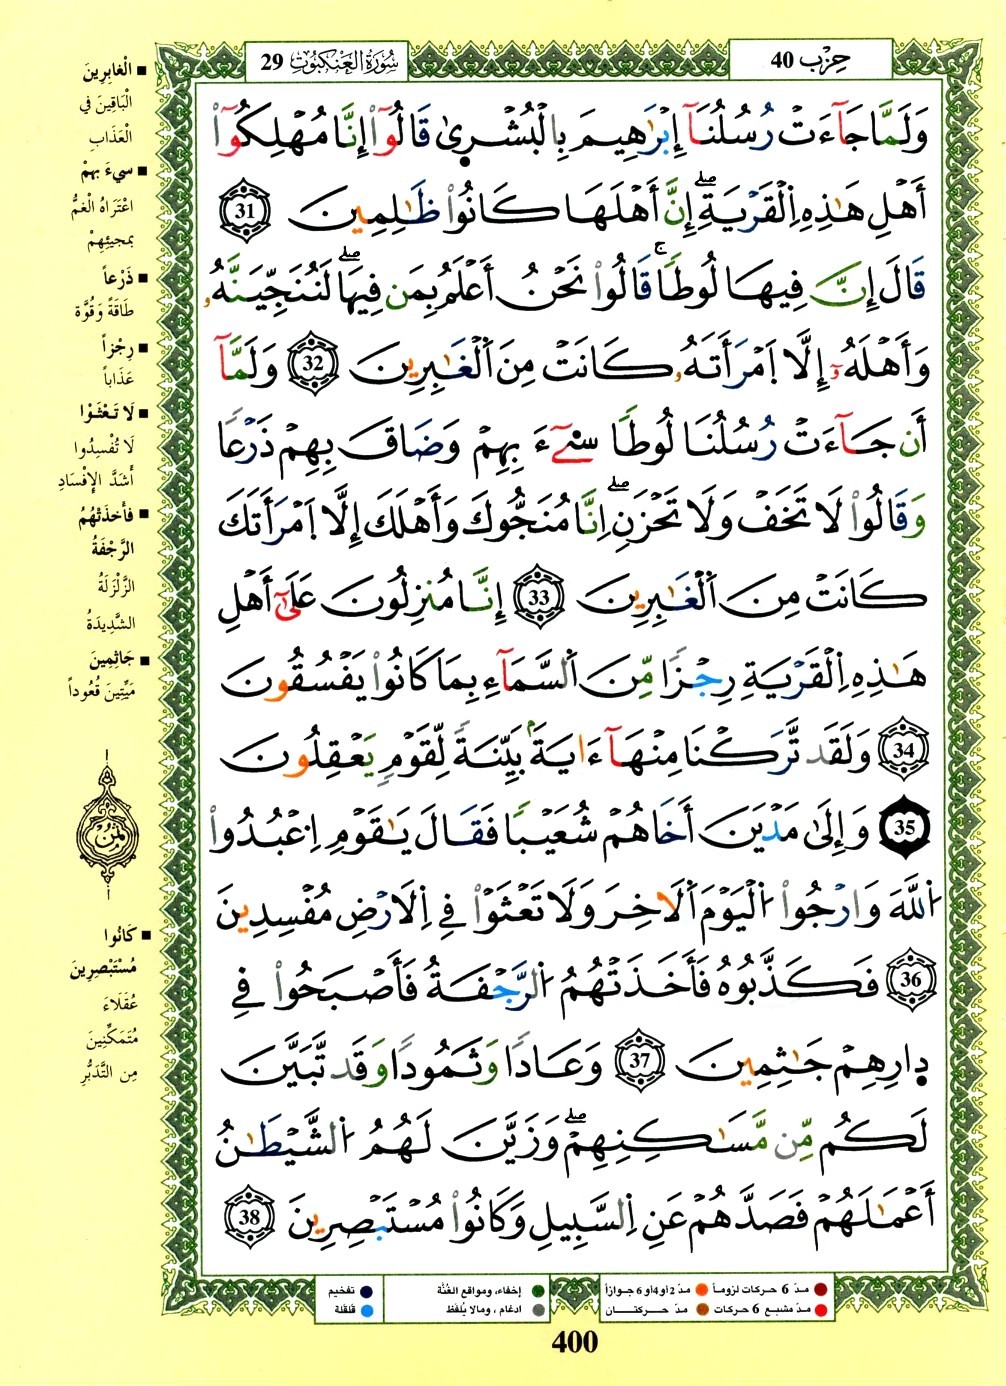 سُورَةُ الْعَنكَبُوتِ 29
حِزْب 40
وَلَمَّا جَآءَتْ رُسُلُنَآ إِبْرَٰهِيمَ بِالْبُشْر۪ىٰ قَالُوٓاْ إِنَّا مُهْلِكُوٓاْ
أَهْلِ هَٰذِهِ اِ۬لْقَرْيَةِۖ إِنَّ أَهْلَهَا كَانُواْ ظَٰلِمِينَ 31
قَالَ إِنَّ فِيهَا لُوطاٗۚ قَالُواْ نَحْنُ أَعْلَمُ بِمَن فِيهَاۖ لَنُنَجِّيَنَّهُۥ
وَأَهْلَهُۥٓ إِلَّا اَ۪مْرَأَتَهُۥ كَانَتْ مِنَ اَ۬لْغَٰبِرِينَ 32 وَلَمَّآ
أَن جَآءَتْ رُسُلُنَا لُوطاٗ سِےٓءَ بِهِمْ وَضَاقَ بِهِمْ ذَرْعاٗ
وَقَالُواْ لَا تَخَفْ وَلَا تَحْزَنِۖ اِنَّا مُنَجُّوكَ وَأَهْلَكَ إِلَّا اَ۪مْرَأَتَكَ
كَانَتْ مِنَ اَ۬لْغَٰبِرِينَ 33 إِنَّا مُنزِلُونَ عَلَىٰٓ أَهْلِ
هَٰذِهِ اِ۬لْقَرْيَةِ رِجْزاٗ مِّنَ اَ۬لسَّمَآءِ بِمَا كَانُواْ يَفْسُقُونَ
34 وَلَقَد تَّرَكْنَا مِنْهَآ ءَايَةَۢ بَيِّنَةٗ لِّقَوْمٖ يَعْقِلُونَ
35 وَإِلَىٰ مَدْيَنَ أَخَاهُمْ شُعَيْباٗ فَقَالَ يَٰقَوْمِ اِ۟عْبُدُواْ
اُ۬للَّهَ وَارْجُواْ اُ۬لْيَوْمَ اَ۬لَاخِرَ وَلَا تَعْثَوْاْ فِے اِ۬لَارْضِ مُفْسِدِينَ
36 فَكَذَّبُوهُ فَأَخَذَتْهُمُ اُ۬لرَّجْفَةُ فَأَصْبَحُواْ فِے
د۪ارِهِمْ جَٰثِمِينَ 37 وَعَاداٗ وَثَمُوداٗ وَقَد تَّبَيَّنَ
لَكُم مِّن مَّسَٰكِنِهِمْۖ وَزَيَّنَ لَهُمُ اُ۬لشَّيْطَٰنُ
أَعْمَٰلَهُمْ فَصَدَّهُمْ عَنِ اِ۬لسَّبِيلِ وَكَانُواْ مُسْتَبْصِرِينَ 38
الْغابِرِينَ
الْبَاقِينَ فِي
الْعَذَابِ
سِيءَ بِهِمْ
اعْتَرَاهُ الْغَمُّ
بِمَجِيئِهِمْ
ذَرْعاً
طَاقَةً وَقُوَّة
رِجْزاً
عَذَاباً
لَا تَعْثَوْا
لَا تُفْسِدُوا
أَشَدَّ الإِفْسَادِ
فَأَخَذَتْهُمُ
الرَّجْفَةُ
الزَّلْزَلَةُ
الشَّدِيدَةُ
جَاثِمِينَ
مَيِّتِينَ قُعُوداً
ثُمُنْ
كَانُوا
مُسْتَبْصِرِينَ
عُقَلَاءَ
مُتَمَكِّنِينَ
مِن التَّدَبُّرِ
مدّ 6 حركات لزوماً مدّ 2 أو 4 أو 6 جوازاً إخفاء، ومواقع الغُنَّة تفخيم
مدّ مشبع 6 حركات مدّ حركتان ادغام، ومالا يُلفَظ قلقلة
400